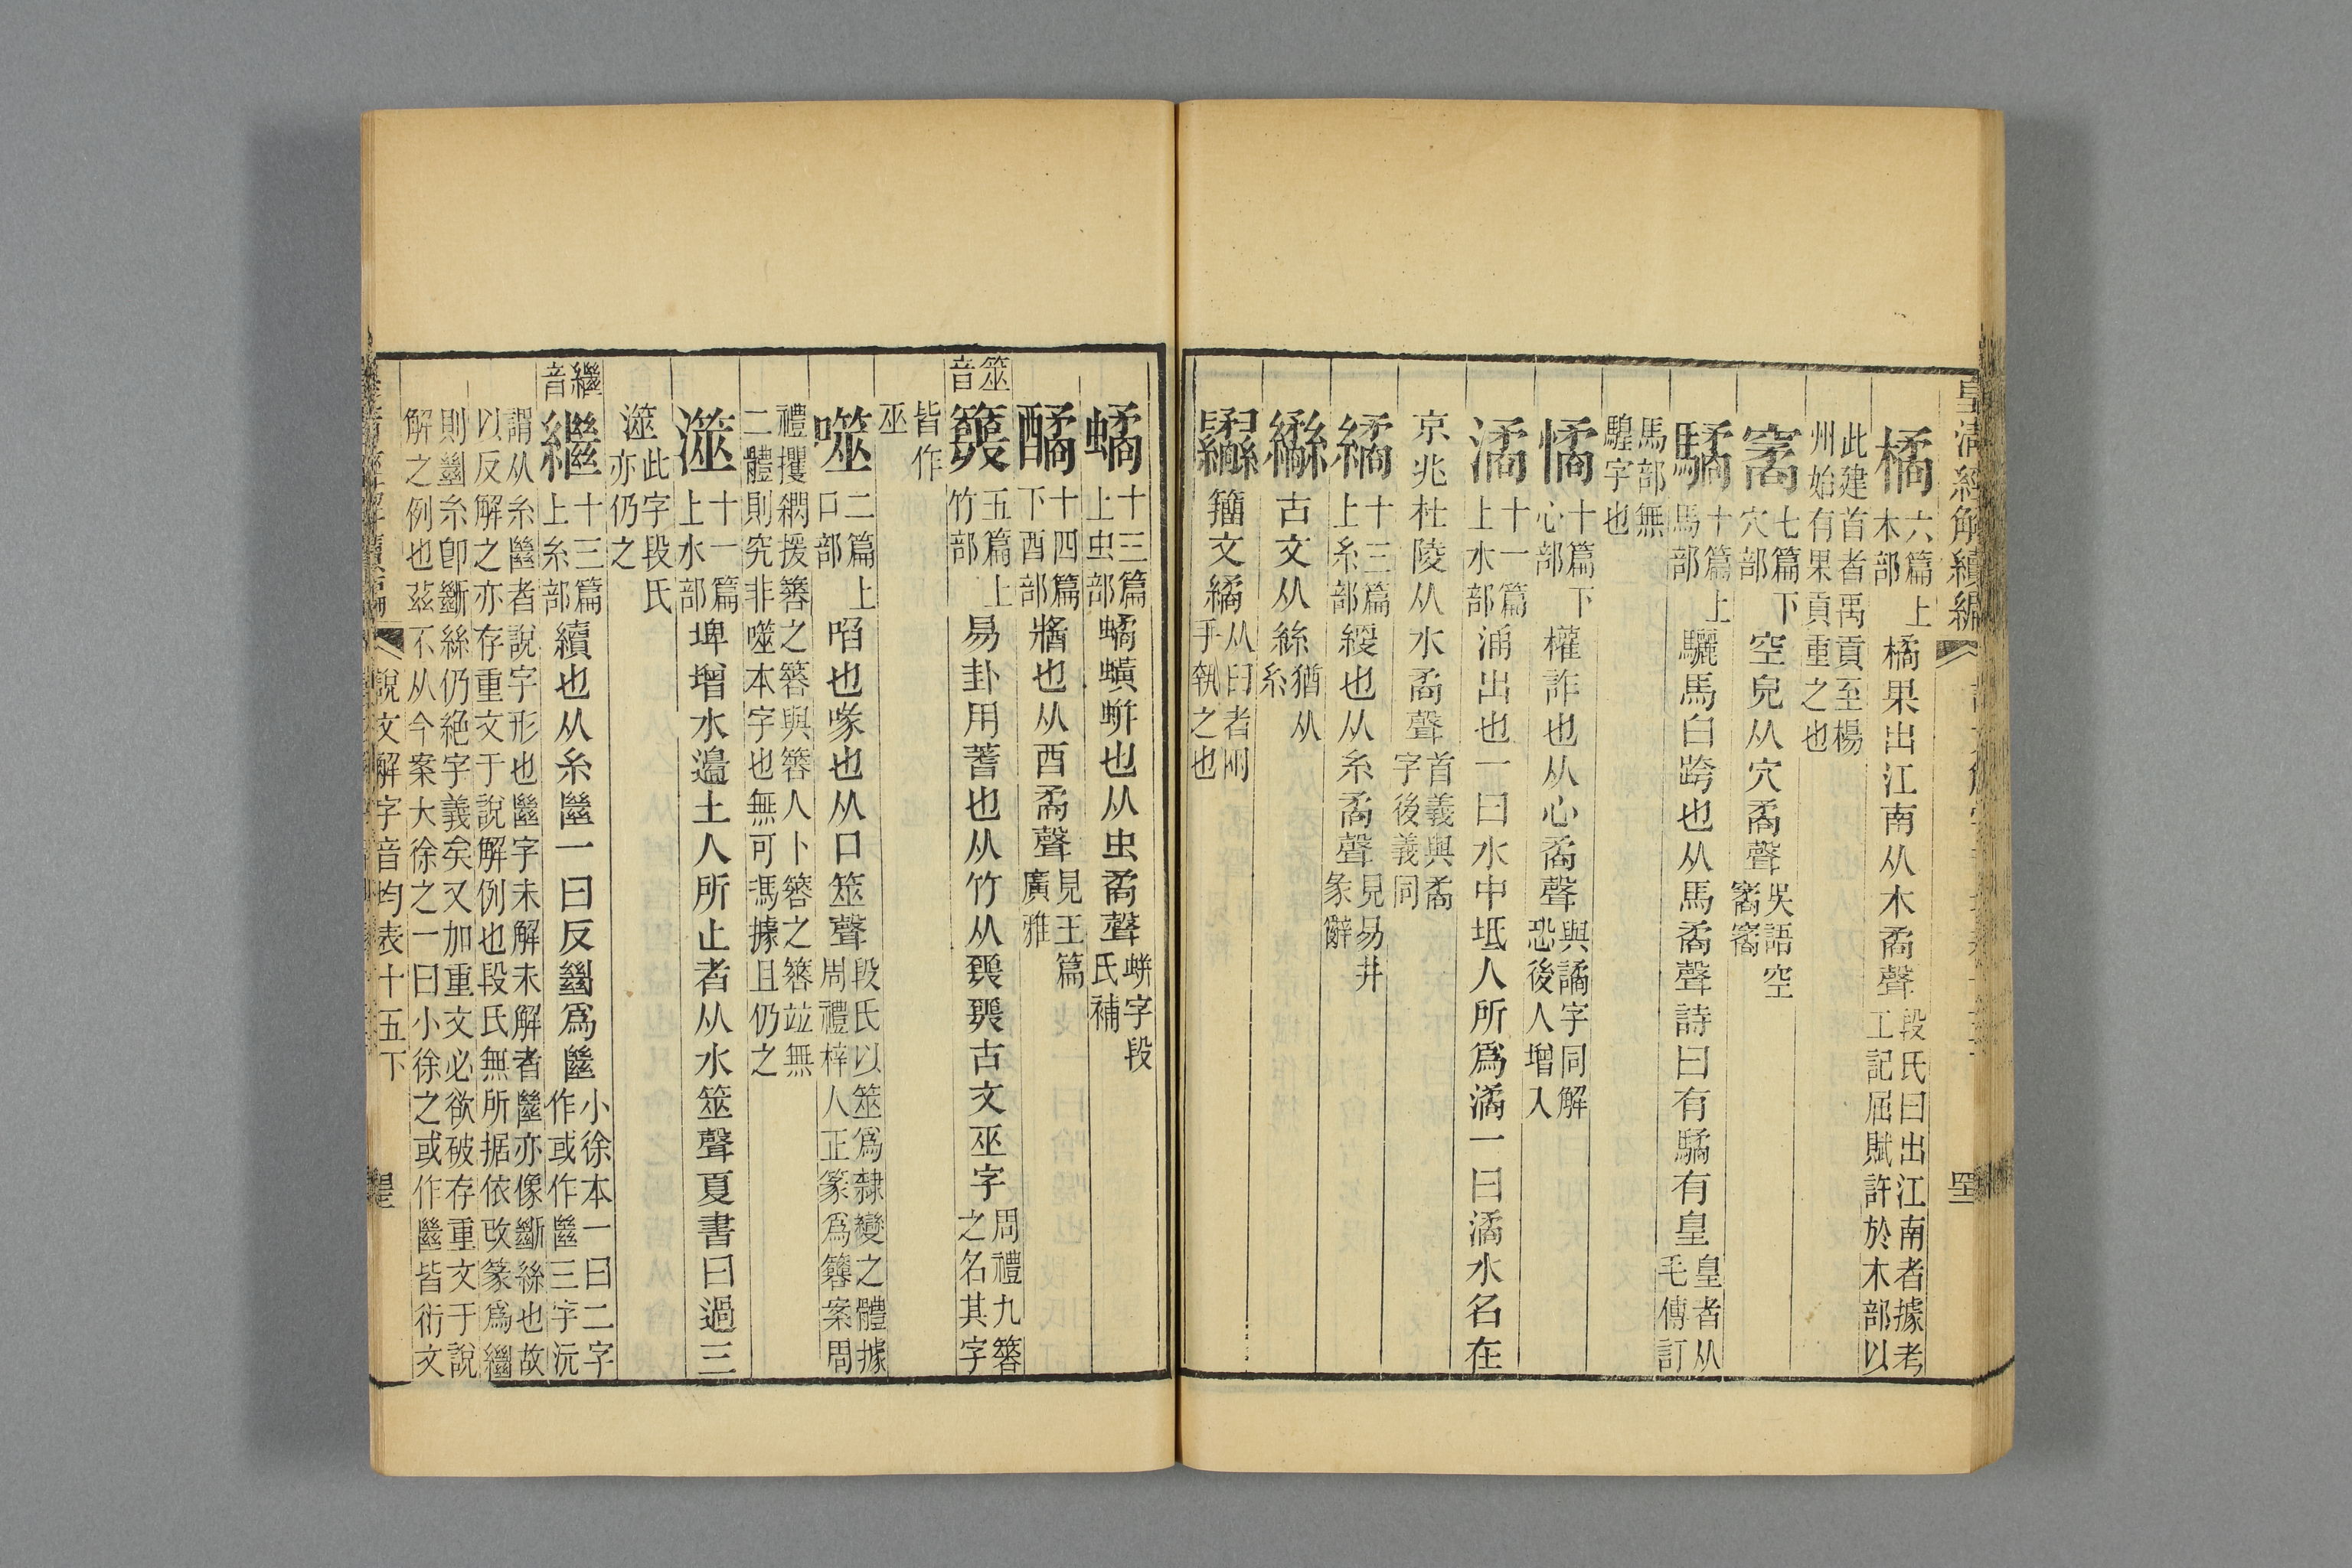 皇清經解續編
橘六篇上木部橘果出江南从木矞聲段氏曰出江南者據考工記屈賦許於木部以
此建首者禹貢至楊州始有果貢重之也
窩七篇下穴部空皃从穴矞聲吴語空
驈十篇上馬部驪馬白跨也从馬矞聲詩曰有驈有皇皇者从毛傳訂
馬部無騜字也
憰十篇下心部權詐也从心矞聲與譎字同解恐後人增入
潏十一篇上水部涌出也一曰水中坻人所爲潏一曰潏水名在
京兆杜陵从水矞聲首義與矞字後義同
繘十三篇上糸部綆也从糸矞聲見易井彖辭
古文从絲猶从糸
籀文繘从𦥑者兩手執之也
蟜十三篇上虫部蟜蟥蛢也从虫矞聲蛢字段氏補
醹十四篇下酉部醬也从酉矞聲見王篇廣雅
筮音
五篇上竹部易卦用蓍也从竹从古文巫字周禮九簭之名其字
皆作巫
噬二篇上口部啗也喙也从口筮聲段氏以筮爲隸變之體據周禮梓人正篆爲案周
禮攫緅援簭之簭與簭人卜簭之簭竝無二體則究非噬本字也無可馮據且仍之
澨十一篇上水部埤增水邉土人所止者从水筮聲夏書曰過三
澨此字段氏亦仍之
繼音
繼十三篇上糸部續也从糸㡭一曰反𢇍爲㡭小徐本一曰二字作或作㡭三字沅
謂从糸㡭者說字形也㡭字未解未解者㡭亦像斷絲也故以反解之亦存重文于說解例也段氏無所据依改篆爲繼
則𢇍糸卽斷絲仍絶字義矣又加重文必欲破存重文于說解之例也茲不从今案大徐之一曰小徐之或作㡭皆衍文
說文解字音均表十五下